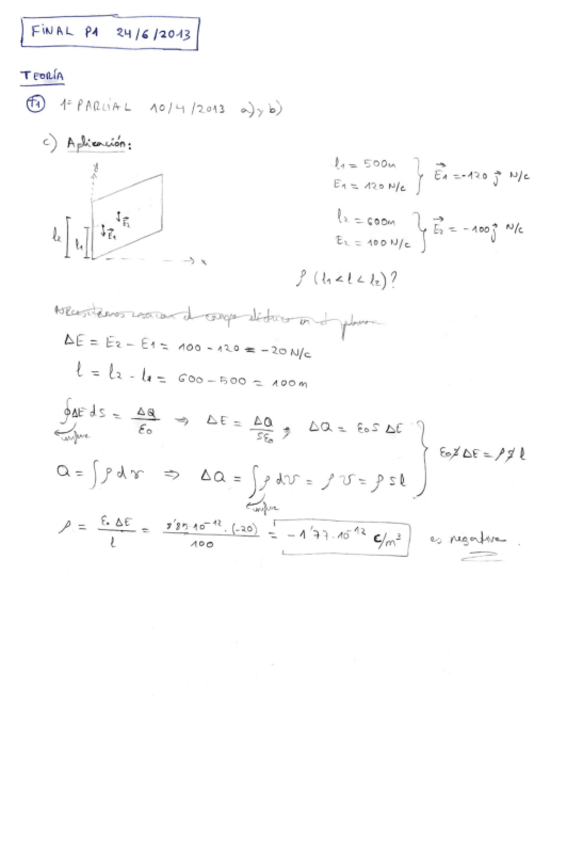 FINAL P1 24/6/2013
TEORÍA
T1 1º PARCIAL 10/4/2013 a) y b)
c) Aplicación:
y
l₂ l₁ E⃗₁ E⃗₂
x
l₁ = 500m
E₁ = 120 N/c } E⃗₁ = -120 j⃗ N/c
l₂ = 600m
E₂ = 100 N/c } E⃗₂ = -100 j⃗ N/c
ρ (l₁ < l < l₂)?
ΔE = E₂ - E₁ = 100 - 120 = -20 N/c
l = l₂ - l₁ = 600 - 500 = 100m
∮ΔE ds = ΔQ/ε₀ ⇒ ΔE = ΔQ/Sε₀ ; ΔQ = ε₀ S ΔE
Q = ∫ρ dv ⇒ ΔQ = ∫ρ dv = ρ v = ρ S l
} ε₀ S ΔE = ρ S l
ρ = ε₀ ΔE / l = 8'85·10⁻¹² · (-20) / 100 = -1'77·10⁻¹² C/m³ es negativa.